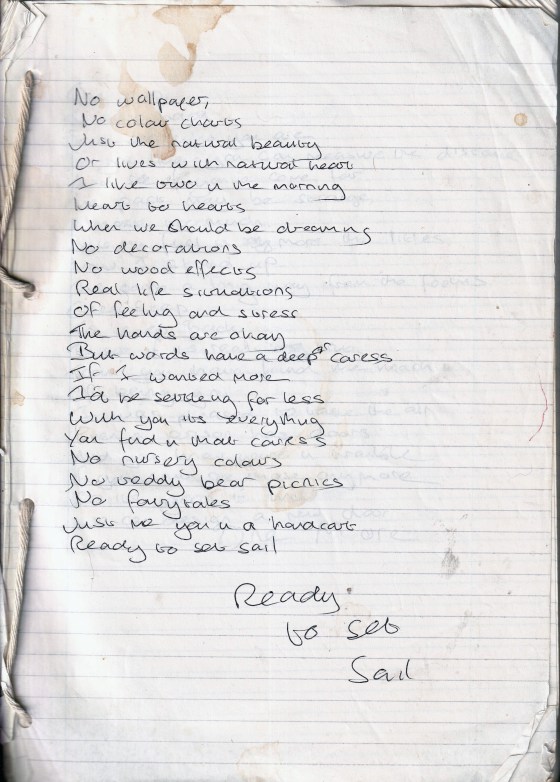 No wallpaper,
No colour charts
Just the natural beauty
Of lives with natural heart
I like two in the morning
Heart to hearts
When we should be dreaming
No decorations
No wood effects
Real life situations
Of feeling and stress
The hands are okay
But words have a deeper caress
If I wanted more
I'd be settling for less
With you its everything
You find in that caress
No nursery colours
No teddy bear picnics
No fairytales
Just me you n a handcart
Ready to set sail
Ready
to set
Sail